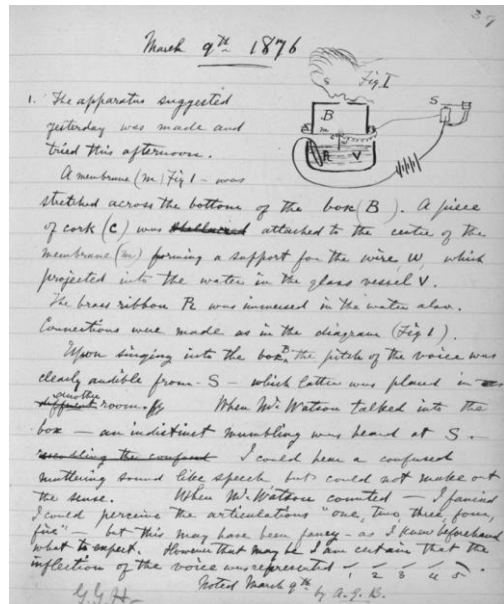 39
March 9th 1876
Fig. I
S
B
m
c
w
R
V
1. The apparatus suggested
yesterday was made and
tried this afternoon.
A membrane (m) Fig 1 - was
stretched across the bottom of the box (B). A piece
of cork (c) was shellacked attached to the center of the
membrane (m) forming a support for the wire, w, which
projected into the water in the glass vessel V.
The brass ribbon R was immersed in the water also.
Connections were made as in the diagram (Fig 1).
Upon singing into the box B, the pitch of the voice was
clearly audible from - S - which latter was placed in
another
different room.
When Mr Watson talked into the
box — an indistinct mumbling was heard at S. —
I could hear a confused
muttering sound like speech but could not make out
the sense. When Mr. Watson counted — I fancied
I could perceive the articulations "one, two three, four,
five" — but this may have been fancy - as I knew beforehand
what to expect. However that may be I am certain that the
inflection of the voice was represented
1 2 3 4 5
Noted March 9th
by A.G.B.
G.G.H.